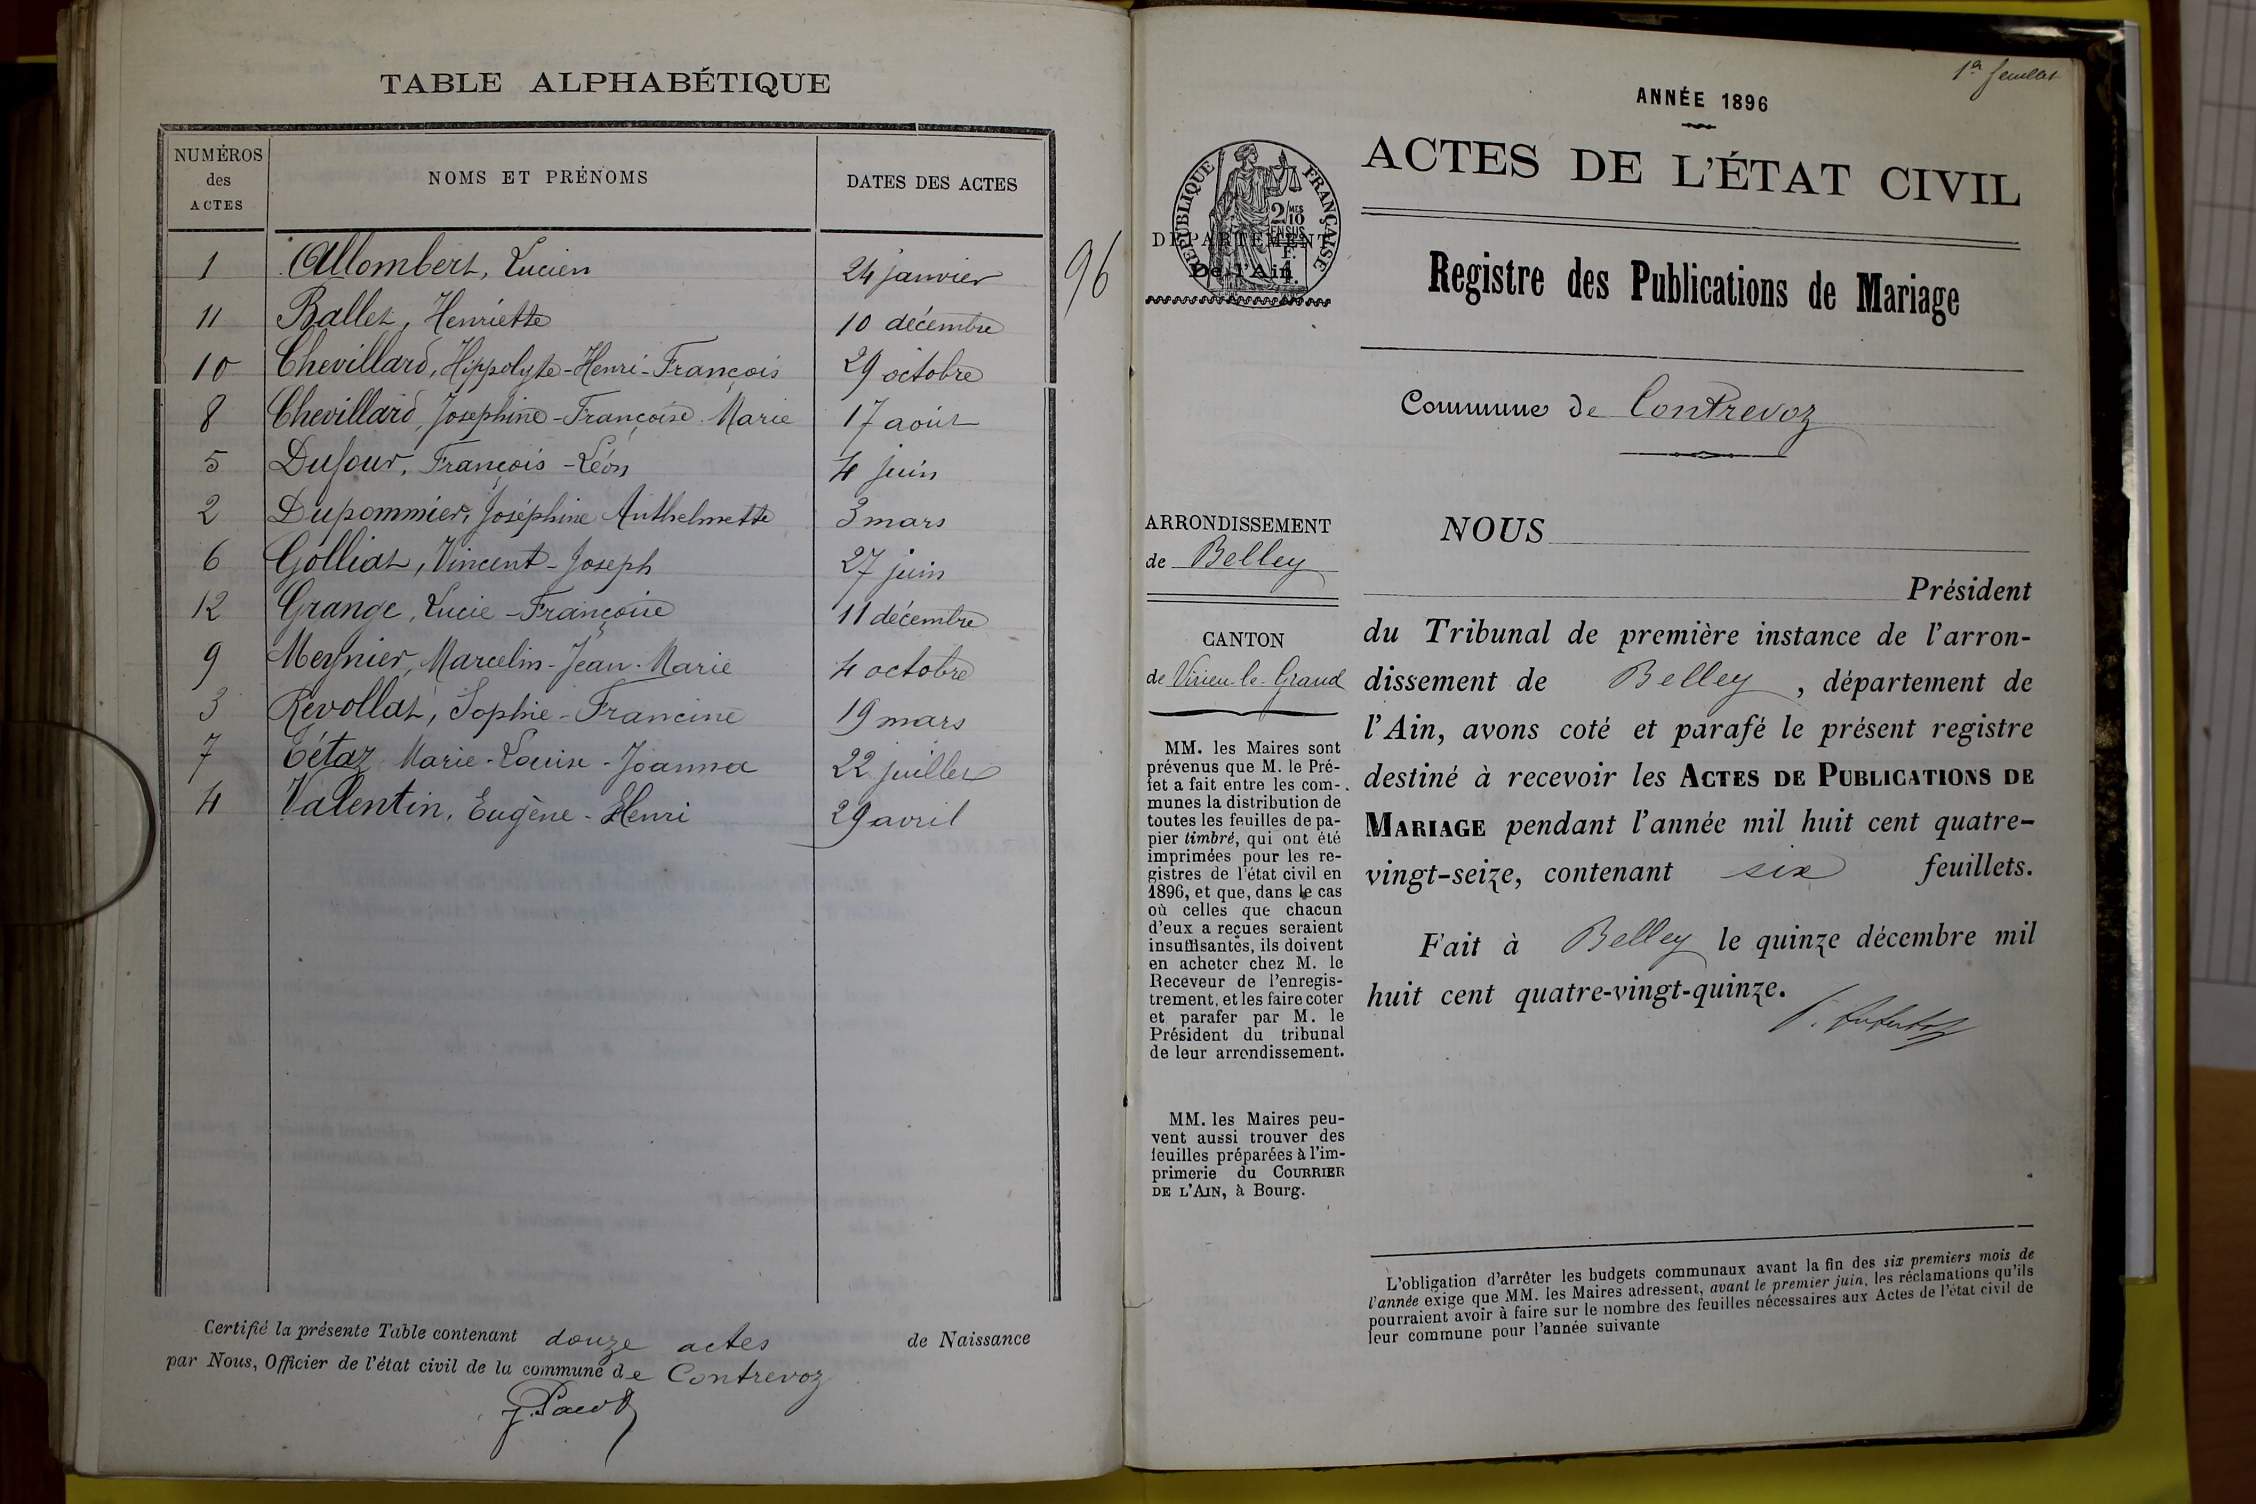 TABLE ALPHABÉTIQUE
NUMÉROS des ACTES
NOMS ET PRÉNOMS
DATES DES ACTES
1 Allombert, Lucien 24 janvier
11 Ballet, Henriette 10 décembre
10 Chevillard, Hippolyte-Henri-François 29 octobre
8 Chevillard, Josephine-Françoise Marie 17 août
5 Dufour, François-Léon 4 juin
2 Dupommier, Joséphine Anthelmette 3 mars
6 Golliat, Vincent-Joseph 27 juin
12 Grange, Lucie-Françoise 11 décembre
9 Meynier, Marcelin-Jean-Marie 4 octobre
3 Revollat, Sophie-Francine 19 mars
7 Tétaz Marie-Louise-Joanna 22 juillet
4 Valentin, Eugène-Henri 29 avril
Certifié la présente Table contenant douze actes de Naissance
par Nous, Officier de l'état civil de la commune de Contrevoz
96
1er feuillet
ANNÉE 1896
ACTES DE L'ÉTAT CIVIL
RÉPUBLIQUE FRANÇAISE
2/10 MES
EN SUS
DÉPARTEMENT
De l'Ain
Registre des Publications de Mariage
Commune de Contrevoz
ARRONDISSEMENT
de Belley
CANTON
de Virieu-le-Grand
MM. les Maires sont
prévenus que M. le Pré-
fet a fait entre les com-
munes la distribution de
toutes les feuilles de pa-
pier timbré, qui ont été
imprimées pour les re-
gistres de l'état civil en
1896, et que, dans le cas
où celles que chacun
d'eux a reçues seraient
insuffisantes, ils doivent
en acheter chez M. le
Receveur de l'enregis-
trement, et les faire coter
et parafer par M. le
Président du tribunal
de leur arrondissement.
MM. les Maires peu-
vent aussi trouver des
feuilles préparées à l'im-
primerie du COURRIER
DE L'AIN, à Bourg.
NOUS
Président
du Tribunal de première instance de l'arron-
dissement de Belley, département de
l'Ain, avons coté et parafé le présent registre
destiné à recevoir les ACTES DE PUBLICATIONS DE
MARIAGE pendant l'année mil huit cent quatre-
vingt-seize, contenant six feuillets.
Fait à Belley le quinze décembre mil
huit cent quatre-vingt-quinze.
L'obligation d'arrêter les budgets communaux avant la fin des six premiers mois de
l'année exige que MM. les Maires adressent, avant le premier juin, les réclamations qu'ils
pourraient avoir à faire sur le nombre des feuilles nécessaires aux Actes de l'état civil de
leur commune pour l'année suivante